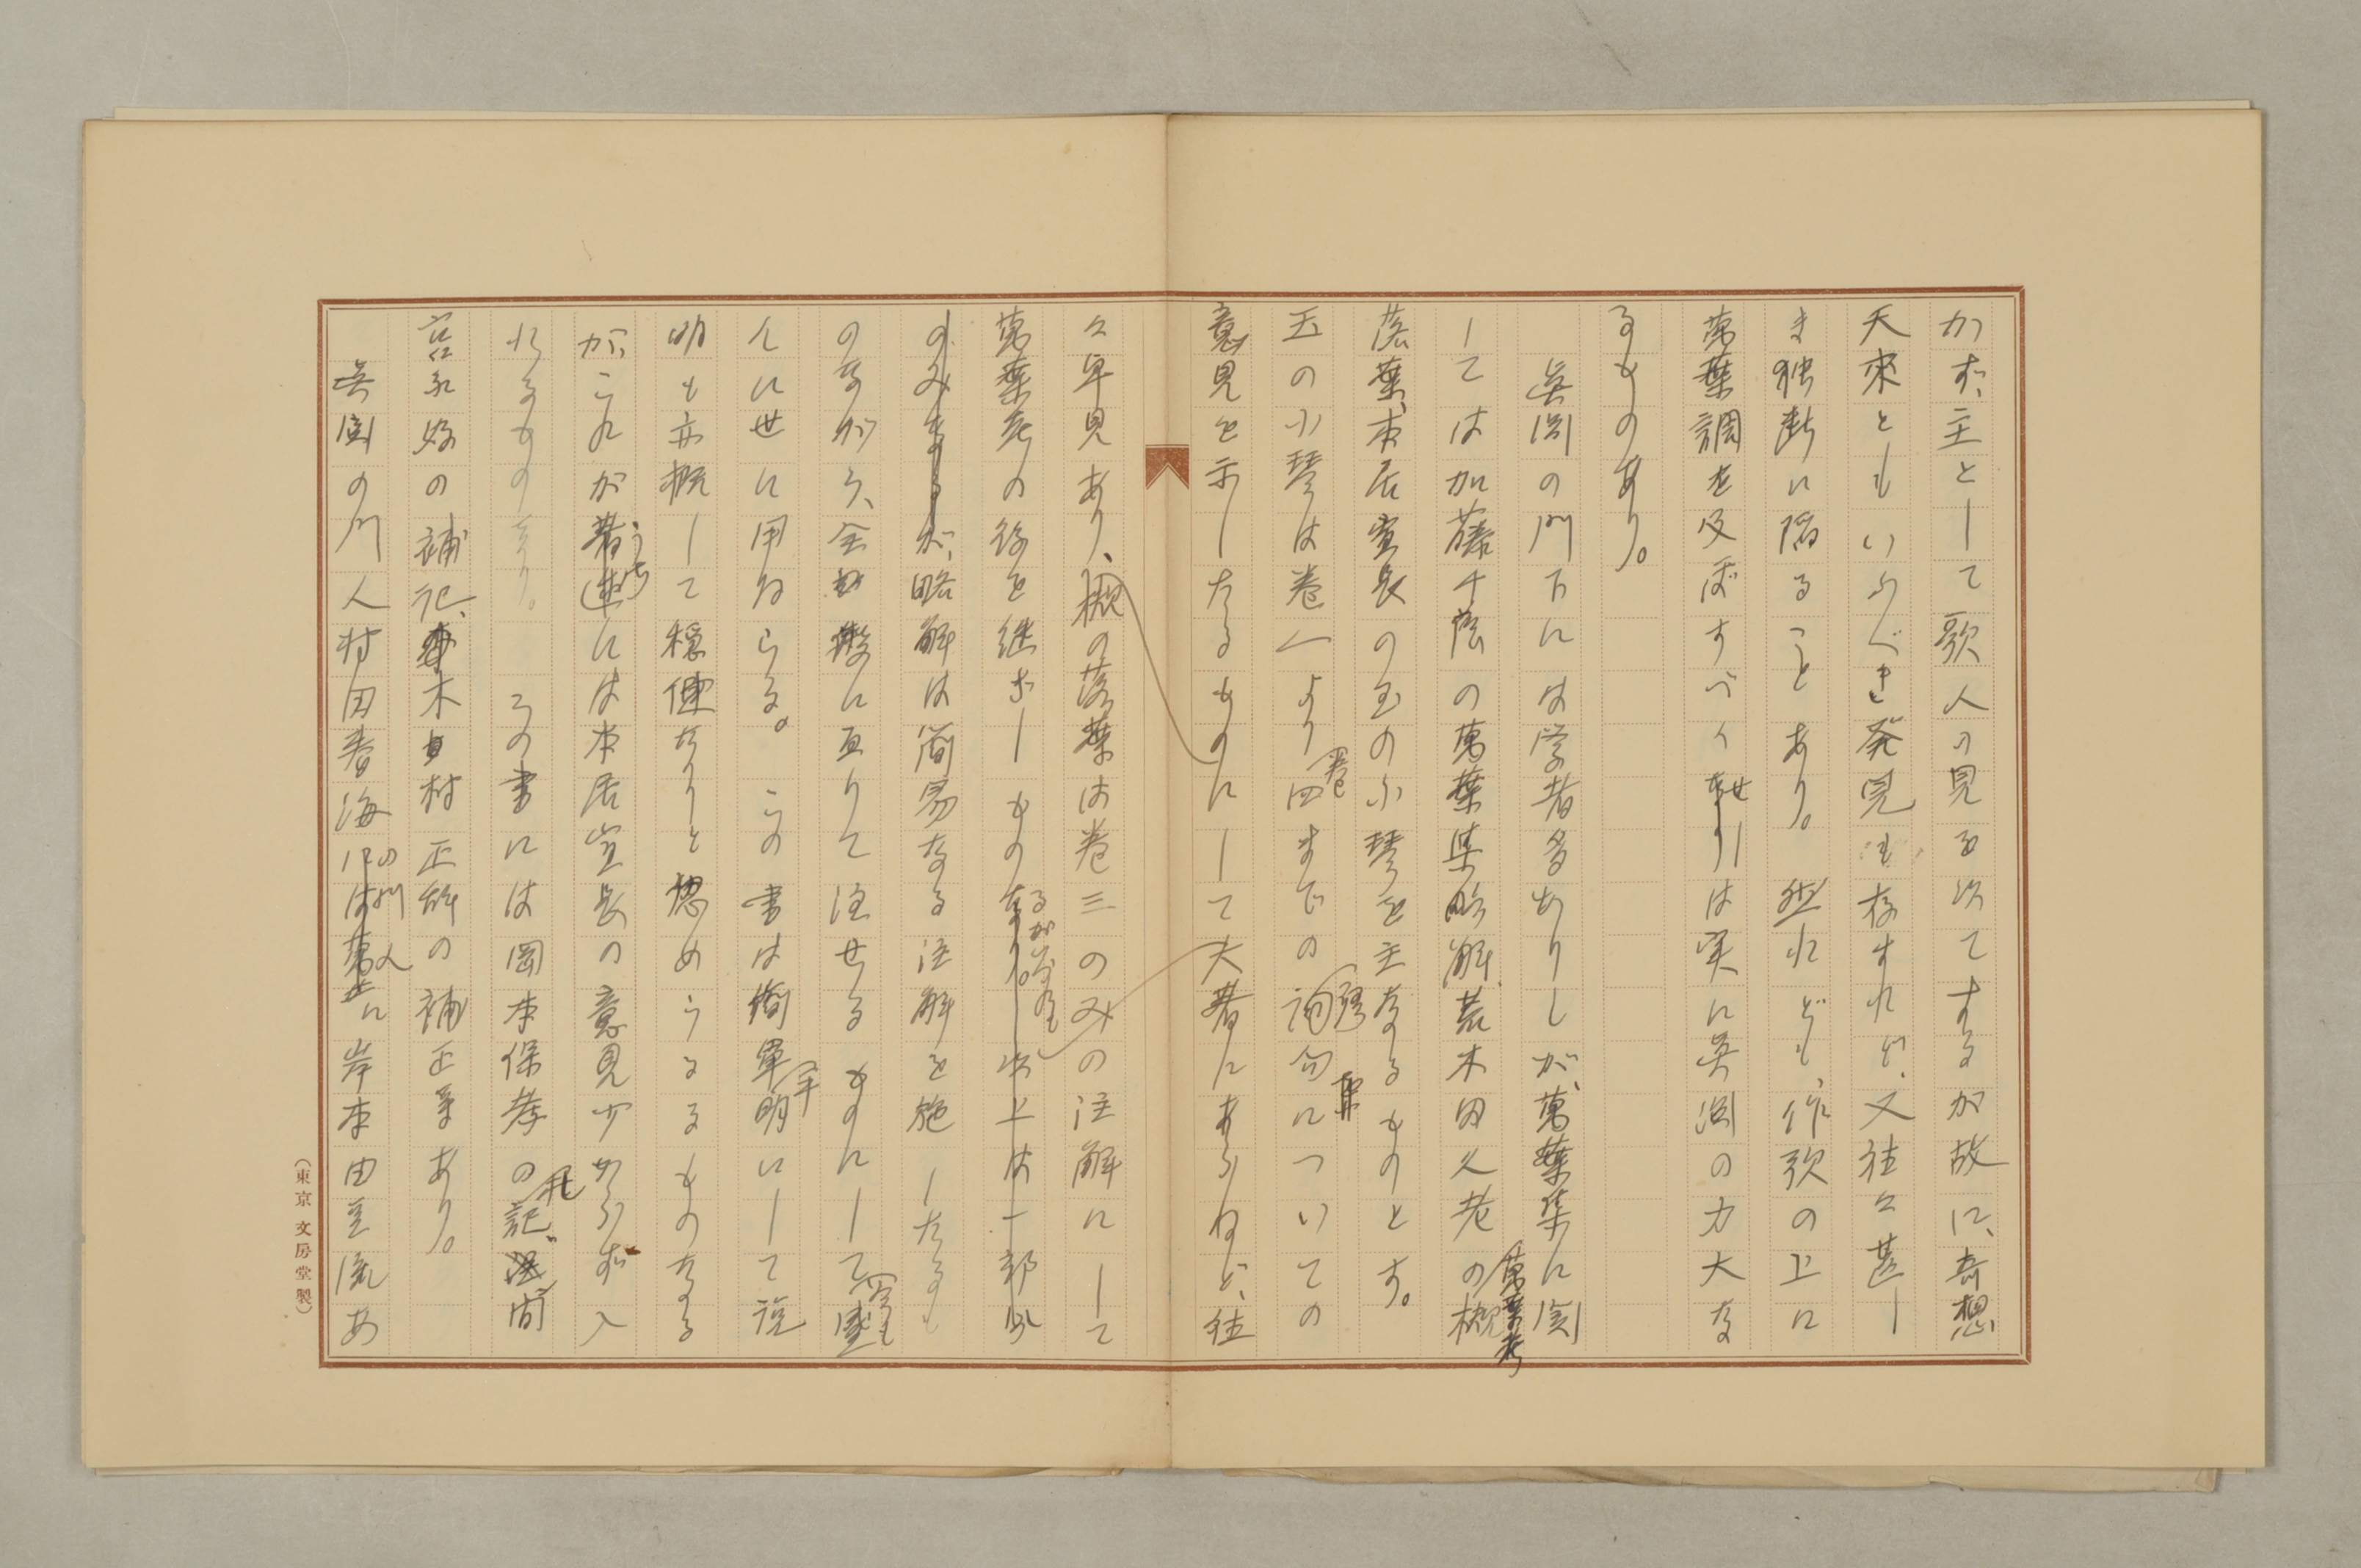 かず、主として歌人の見を以てするが故に、奇想
天来ともいふべき発見も存すれど、又往々甚し
き独断に陥ることあり。然れども、作歌の上に
萬葉調を及ぼすべく せりは実に眞淵の力大な
るものあり。
眞淵の門下には学者多かりしが、萬葉集に関
しては加藤千蔭の萬葉集略解、荒木田久老の萬葉考槻
落葉、本居宣長の玉の小琴を主なるものとす。
玉の小琴は巻一より巻四までの詞句についての
意見を示したるものにして大著にあらねど、往
々卓見あり、槻の落葉は巻三のみの注解にして
萬葉考の後を継ぎしものなるが
のみなるが、略解は簡易なる注解を施したるも
のながら、全部に亙りて注せるものにして
んに世に用ねらる。この書は簡単明にして説
明も亦概して穏健なりと認めうるものなる
が、これがうちには本居宣長の意見少からず入
れるものなり。この書には岡本保孝の
宮永好の補記、木村正辞の補正等あり。
眞淵の門人村田春海の門人に岸本由豆流あ
(東京 文房堂製)